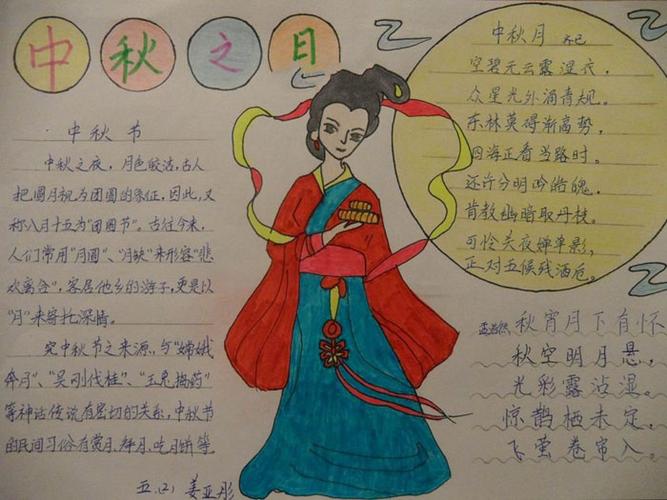 中秋之日
中秋节
中秋之夜，月色皎洁，古人
把圆月视为团圆的象征，因此，又
称八月十五为"团圆节"。古往今来，
人们常用"月圆"、"月缺"来形容"悲
欢离合"，客居他乡的游子，更是以
"月"来寄托深情。
究中秋节之来源，与"嫦娥
奔月"、"吴刚伐桂"、"玉兔捣药"
等神话传说有密切的关系，中秋节
的民间习俗有赏月、拜月、吃月饼等
五.(2) 姜亚彤
中秋月 齐己
空碧无云露湿衣，
众星光外涌青规。
东林莫碍渐高势，
四海正看当路时。
还许分明吟皓魄，
肯教幽暗取丹枝。
可怜关夜婵单影，
正对五候残酒卮。
孟浩然 秋宵月下有怀
秋空明月悬，
光彩露沾湿。
惊鹊栖未定，
飞萤卷帘入。